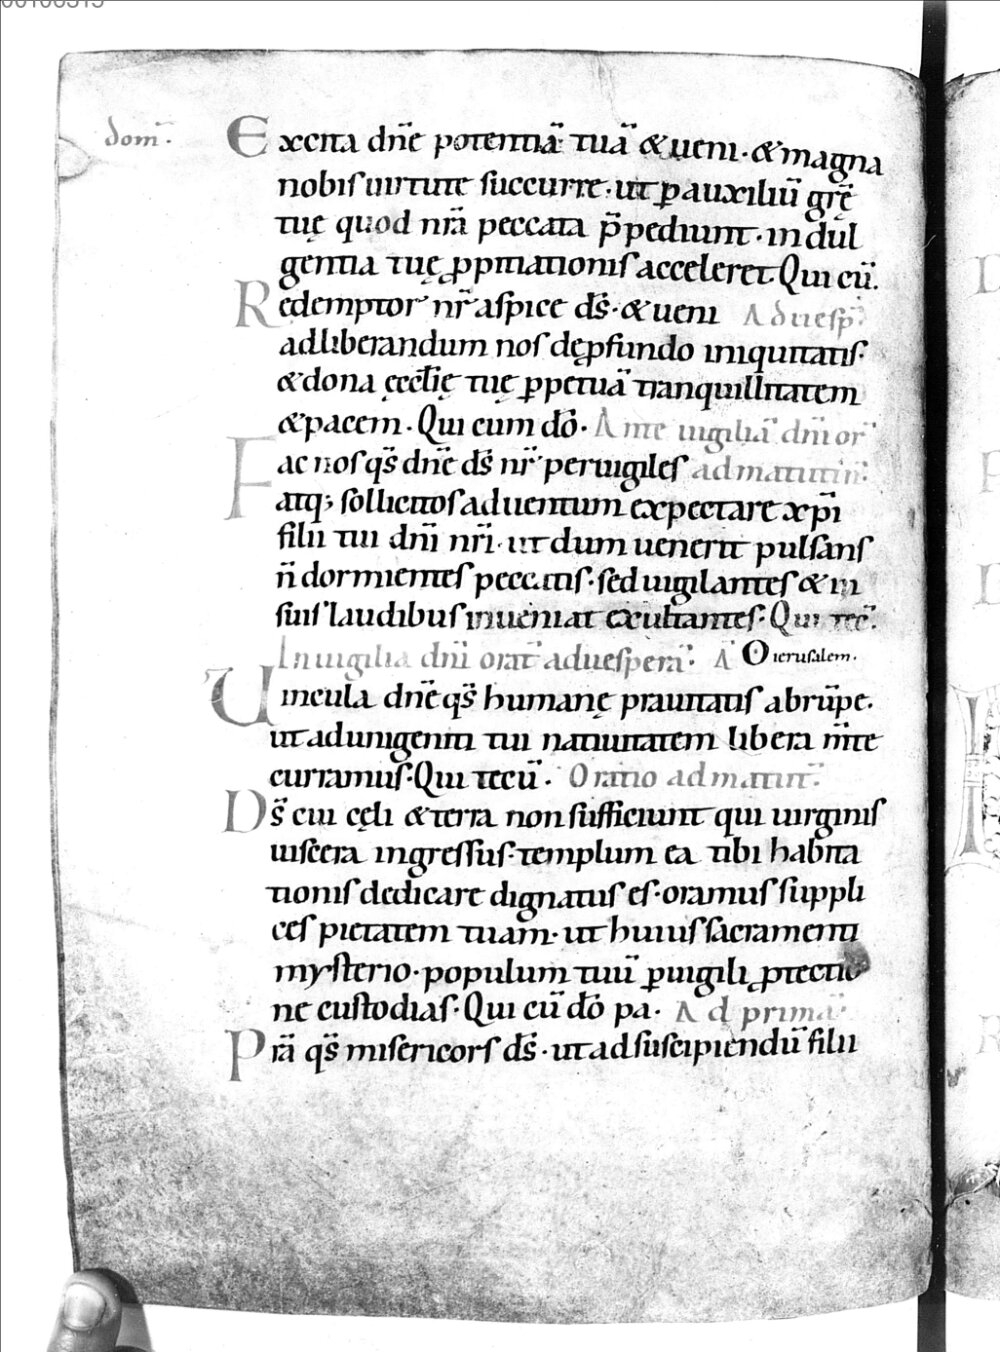 dom̅.
Excita dn̅e potentia̅ tua̅ & ueni · & magna
nobis uirtute succurre · ut ꝑ auxiliu̅ gr̅ę
tuę quod nr̅a peccata p̅pediunt · indul
gentia tuę ꝓpitiationis acceleret Qui cu̅.
Redemptor nr̅ aspice ds̅ · & ueni Ad uesp̅.
ad liberandum nos de ꝓfundo iniquitatis ·
& dona ęccl̅ię tuę ꝑpetua̅ tranquillitatem
& pacem · Qui cum do̅ · Ante uigilia̅ dn̅i or̅
Fac nos qs̅ dn̅e ds̅ nr̅ peruigiles ad matutin̅.
atq; sollicitos aduentum expectare xp̅i
filii tui dn̅i nr̅i · ut dum uenerit pulsans
n̅ dormientes peccatis · sed uigilantes & in
suis laudibus inueniat exultantes · Qui tec̅.
In uigilia dn̅i orat̅ ad uespera̅. A̅ O ierusalem.
Uincula dn̅e qs̅ humanę prauitatis abru̅pe.
ut ad unigeniti tui natiuitatem libera m̅te
curramus · Qui tecu̅ · Oratio ad matut̅.
Ds̅ cui cęli & terra non sufficiunt qui uirginis
uiscera ingressus · templum ea tibi habita
tionis dedicare dignatus es · oramus suppli
ces pietatem tuam · ut huius sacramenti
mysterio · populum tuu̅ ꝑuigili ꝓtectio
ne custodias · Qui cu̅ do̅ pa · Ad prima̅.
Pr̅a qs̅ misericors ds̅ · ut ad suscipiendu̅ filii